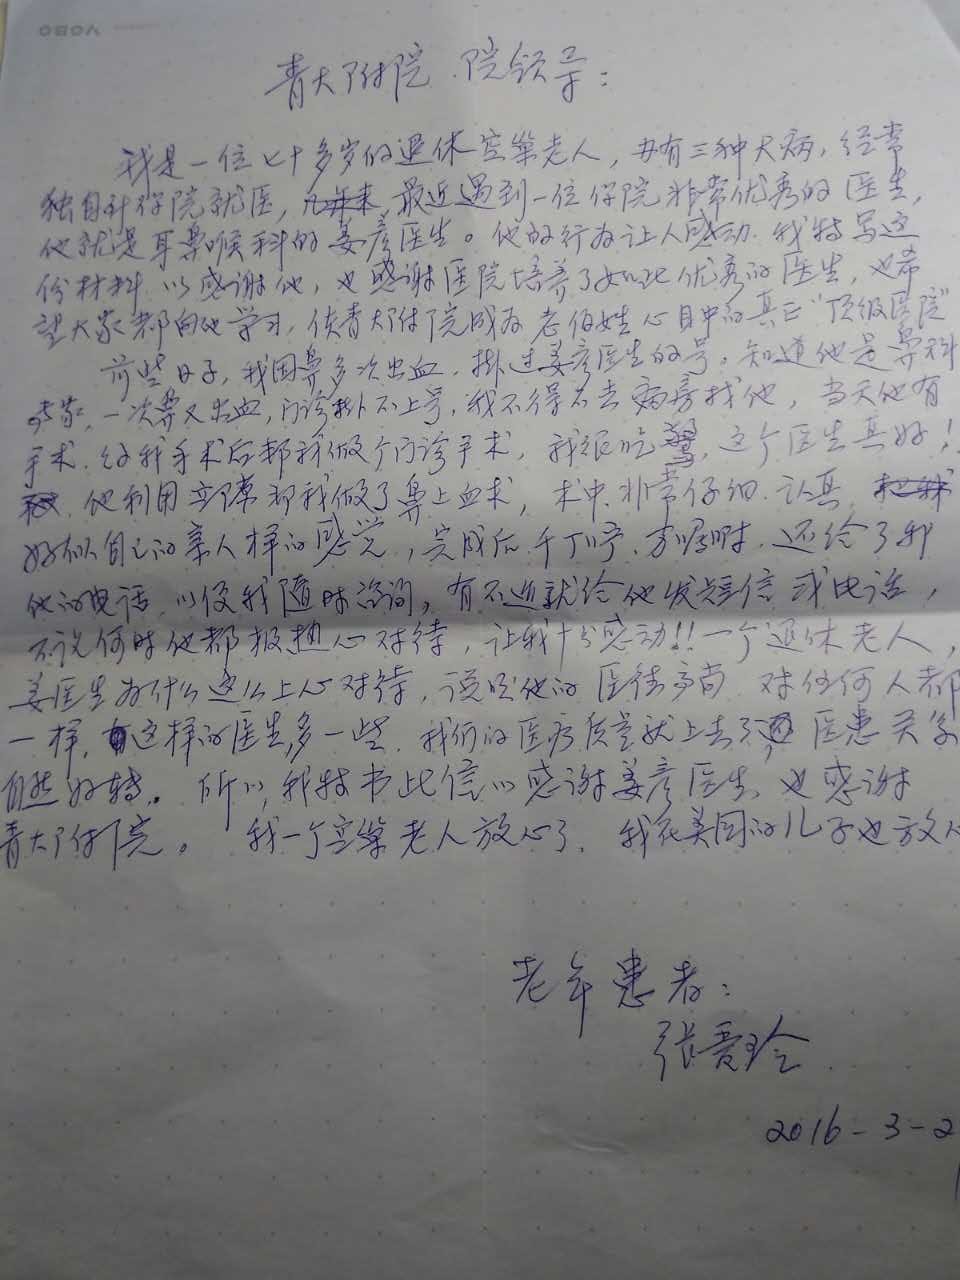 VOBO
青大附院 院领导：
我是一位七十多岁的退休空巢老人，患有三种大病，经常
独自到你院就医，最近遇到一位你院非常优秀的医生，
他就是耳鼻喉科的姜彦医生。他的行为让人感动，我特写这
份材料，以感谢他，也感谢医院培养了如此优秀的医生，也希
望大家都向他学习，使青大附院成为老百姓心目中的真正“顶级医院”
前些日子，我因鼻多次出血，挂过姜彦医生的号。知道他是鼻科
专家，一次鼻又出血，门诊挂不上号，我不得不去病房找他，当天他有
手术，给我手术后帮我做个门诊手术，我很吃惊，这个医生真好！
他利用空隙帮我做了鼻止血术，术中非常仔细，认真，
好似自己的亲人样的感觉，完成后，千叮咛，万嘱咐，还给了我
他的电话，以便我随时咨询，有不适就给他发短信或电话，
不论何时他都极热心对待，让我十分感动!!一个退休老人，
姜医生为什么这么上心对待，说明他的医德高尚，对任何人都
一样，这样的医生多一些，我们的医疗质量就上去了，医患关系
自然好转。所以，我特书此信以感谢姜彦医生，也感谢
青大附院。我一个空巢老人放心了，我在美国的儿子也放心
老年患者：
张爱玲
2016-3-2